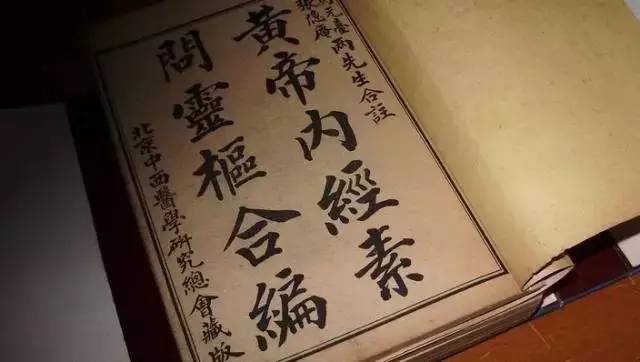 元臺
張隱庵兩先生合註
黃帝內經素
問靈樞合編
北京中西醫學研究總會藏版